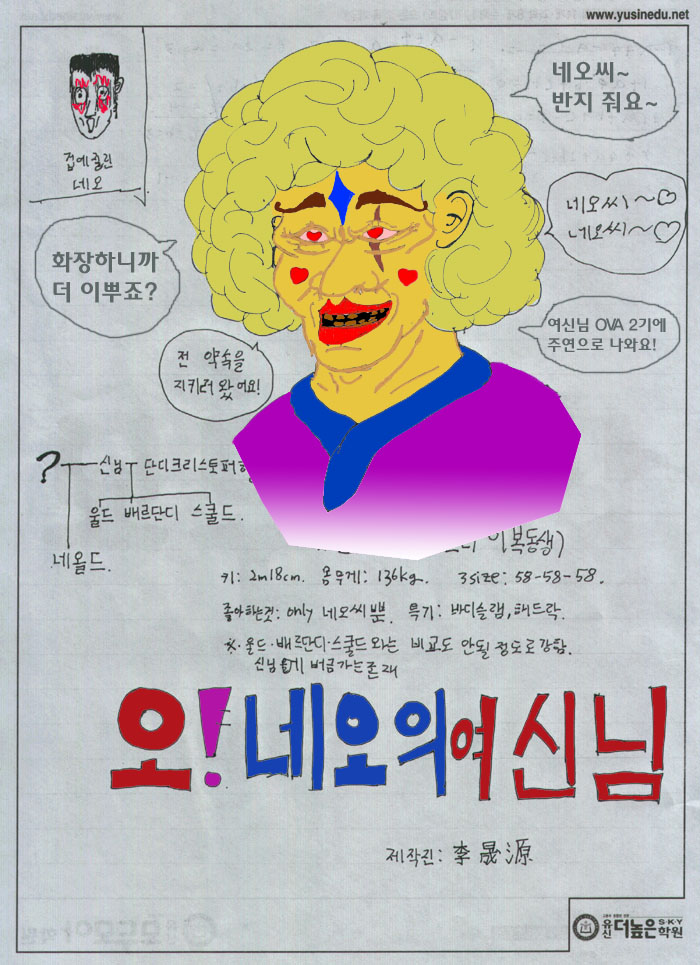 www.yusinedu.net
네오씨~
반지 줘요~
겁에질린
네오
네오씨~♡
네오씨~♡
화장하니까
더 이뿌죠?
여신님 OVA 2기에
주연으로 나와요!
전 약속을
지키러 왔어요!
? 신님 단디크리스토퍼
울드 배르단디 스쿨드.
네올드.
이복동생)
키: 2m18cm. 몸무게: 136kg. 3size: 58-58-58.
좋아하는것: only 네오씨뿐. 특기: 바디슬램, 해드락.
※·울드·배르단디·스쿨드와는 비교도 안될 정도로강함.
신님에게 버금가는존재
오!네오의여신님
제작진: 李晟源
유신 더높은 SKY 학원